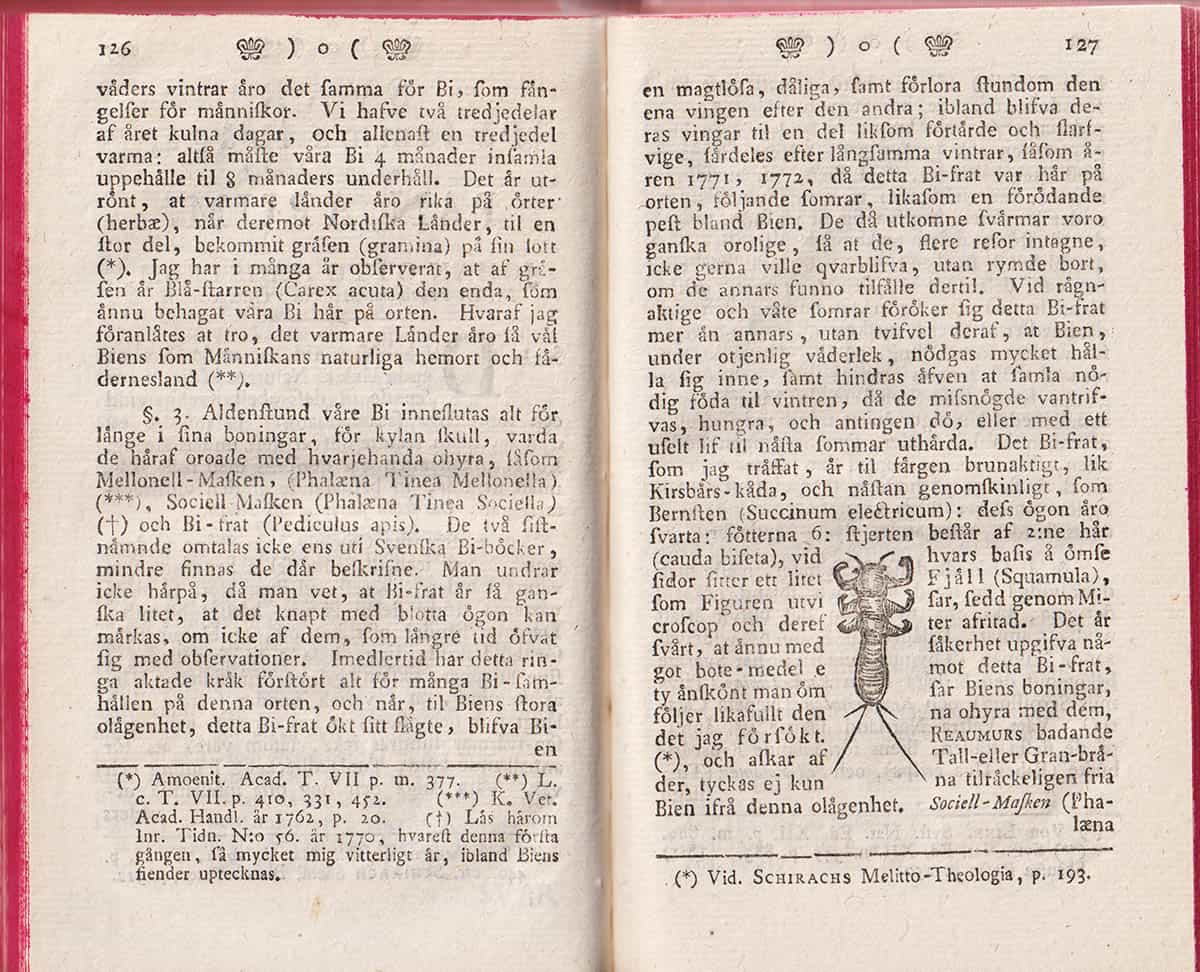 126 ) o (
väders vintrar äro det ſamma för Bi, ſom fän-
gelſer för männiſkor. Vi hafve två tredjedelar
af året kulna dagar, och allenaſt en tredjedel
varma: altſå måſte våra Bi 4 månader inſamla
uppehälle til 8 månaders underhåll. Det är ut-
rönt, at varmare länder äro rika på örter
(herbæ), när deremot Nordiſka Länder, til en
ſtor del, bekommit gräſen (gramina) på ſin lott
(*). Jag har i många år obſerverat, at af grä-
ſen är Blå-ſtarren (Carex acuta) den enda, ſom
ännu behagat våra Bi här på orten. Hvaraf jag
föranlåtes at tro, det varmare Länder äro ſå väl
Biens ſom Männiſkans naturliga hemort och fä-
dernesland (**).
§. 3. Aldenſtund våre Bi inneſlutas alt för
länge i ſina boningar, för kylan ſkull, varda
de häraf oroade med hvarjehanda ohyra, ſåſom
Mellonell-Maſken, (Phalæna Tinea Mellonella)
(***), Sociell-Maſken (Phalæna Tinea Sociella)
(†) och Bi-frat (Pediculus apis). De två ſiſt-
nämnde omtalas icke ens uti Svenſka Bi-böcker,
mindre finnas de där beſkrifne. Man undrar
icke härpå, då man vet, at Bi-frat är ſå gan-
ſka litet, at det knapt med blotta ögon kan
märkas, om icke af dem, ſom längre tid öfvat
ſig med obſervationer. Imedlertid har detta rin-
ga aktade kräk förſtört alt för många Bi-ſam-
hällen på denna orten, och när, til Biens ſtora
olägenhet, detta Bi-frat ökt ſitt ſlägte, blifva Bi-
en
(*) Amoenit. Acad. T. VII p. m. 377. (**) L.
c. T. VII. p. 410, 331, 452. (***) K. Vet.
Acad. Handl. år 1762, p. 20. (†) Läs härom
Inr. Tidn. N:o 56. år 1770, hvareſt denna förſta
gången, ſå mycket mig vitterligt är, ibland Biens
fiender uptecknas.
) o ( 127
en magtlöſa, dåliga, ſamt förlora ſtundom den
ena vingen efter den andra; ibland blifva de-
ras vingar til en del likſom förtärde och ſlarf-
vige, ſärdeles efter långſamma vintrar, ſåſom å-
ren 1771, 1772, då detta Bi-frat var här på
orten, följande ſomrar, likaſom en förödande
peſt bland Bien. De då utkomne ſvärmar voro
ganſka orolige, ſå at de, flere reſor intagne,
icke gerna ville qvarblifva, utan rymde bort,
om de annars funno tilfälle dertil. Vid rägn-
aktige och våte ſomrar föröker ſig detta Bi-frat
mer än annars, utan tvifvel deraf, at Bien,
under otjenlig väderlek, nödgas mycket hål-
la ſig inne, ſamt hindras äfven at ſamla nö-
dig föda til vintren, då de miſsnögde vantrif-
vas, hungra, och antingen dö, eller med ett
uſelt lif til näſta ſommar uthärda. Det Bi-frat,
ſom jag träffat, är til färgen brunaktigt, lik
Kirsbärs-kåda, och näſtan genomſkinligt, ſom
Bernſten (Succinum electricum): deſs ögon äro
ſvarta: fötterna 6: ſtjerten beſtår af 2:ne hår
(cauda biſeta), vid hvars baſis å ömſe
ſidor ſitter ett litet Fjäll (Squamula),
ſom Figuren utvi ſar, ſedd genom Mi-
croſcop och deref ter afritad. Det är
ſvårt, at ännu med ſäkerhet upgifva nå-
got bote-medel e mot detta Bi-frat,
ty änſkönt man öm ſar Biens boningar,
följer likafullt den na ohyra med dem,
det jag förſökt. REAUMURS badande
(*), och aſkar af Tall-eller Gran-brä-
der, tyckas ej kun na tilräckeligen fria
Bien ifrå denna olägenhet. Sociell-Maſken (Pha-
læna
(*) Vid. SCHIRACHS Melitto-Theologia, p. 193.